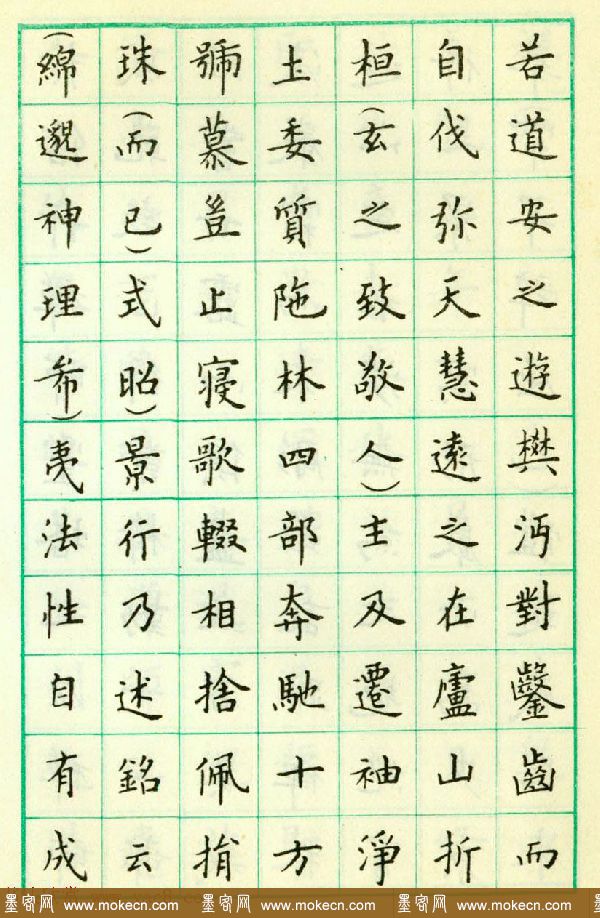 若道安之遊樊沔對鑿齒而
自伐弥天慧遠之在廬山折
桓(玄之致敬人)主及遷袖淨
土委質陁林四部奔馳十方
號慕豈止寝歌輟相捨佩捐
珠(而已)式昭)景行乃述銘云
(綿邈神理希)夷法性自有成
墨客网 www.mokecn.com 墨客网 www.mokecn.com 墨客网 www.mokecn.com